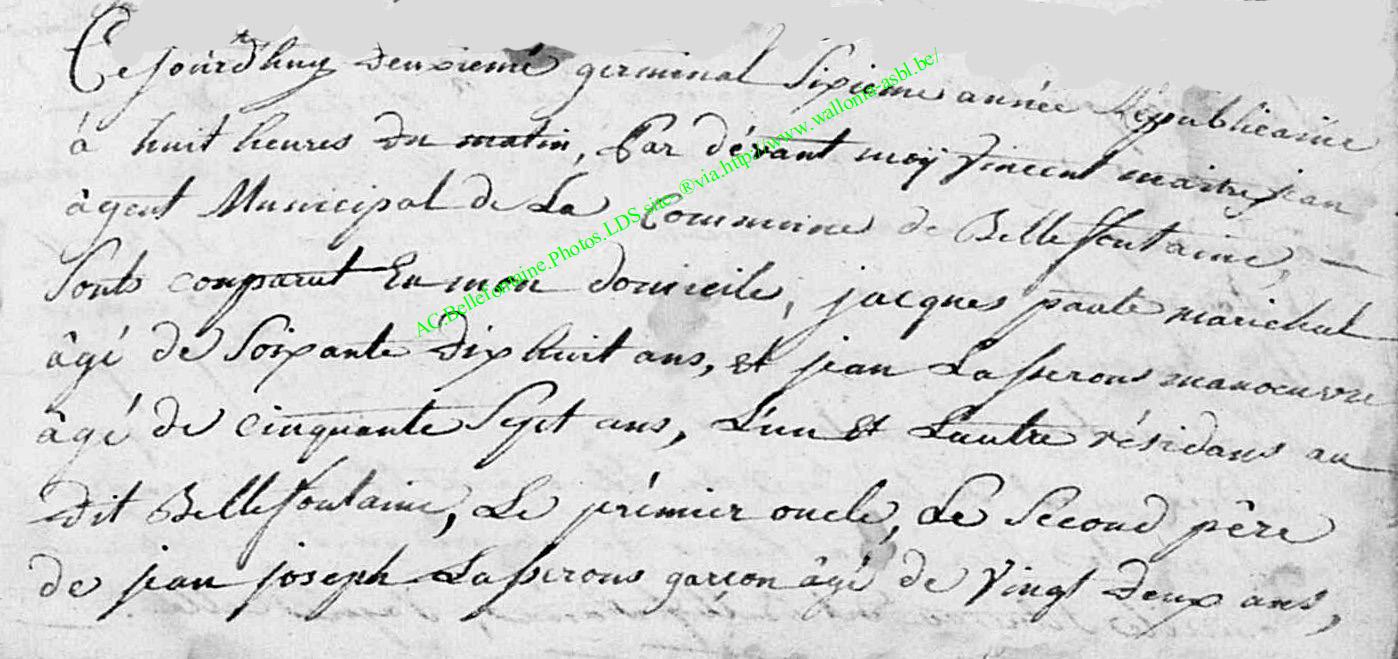 Ce jourd'huy deuxiemé germinal sixieme année Républicaine
à huit heures du matin, Par dévant moÿ Vincent maitrejean
âgent Municipal de La Commune de Bellefontaine, —
Sonts comparut En mon domicile, jacques paate marichal
âgé de Soixante dix huit ans, et jean Lasserons manoeuvre
âgé de cinquante Sept ans, L'un et Lautre résidans au
dit Bellefontaine, Le prémier oncle, Le Second pêre
de jean joseph Lasserons garçon âgé de Vingt deux ans,
AC.Bellefontaine.Photos.LDS.site.®via.http://www.wallonia-asbl.be/